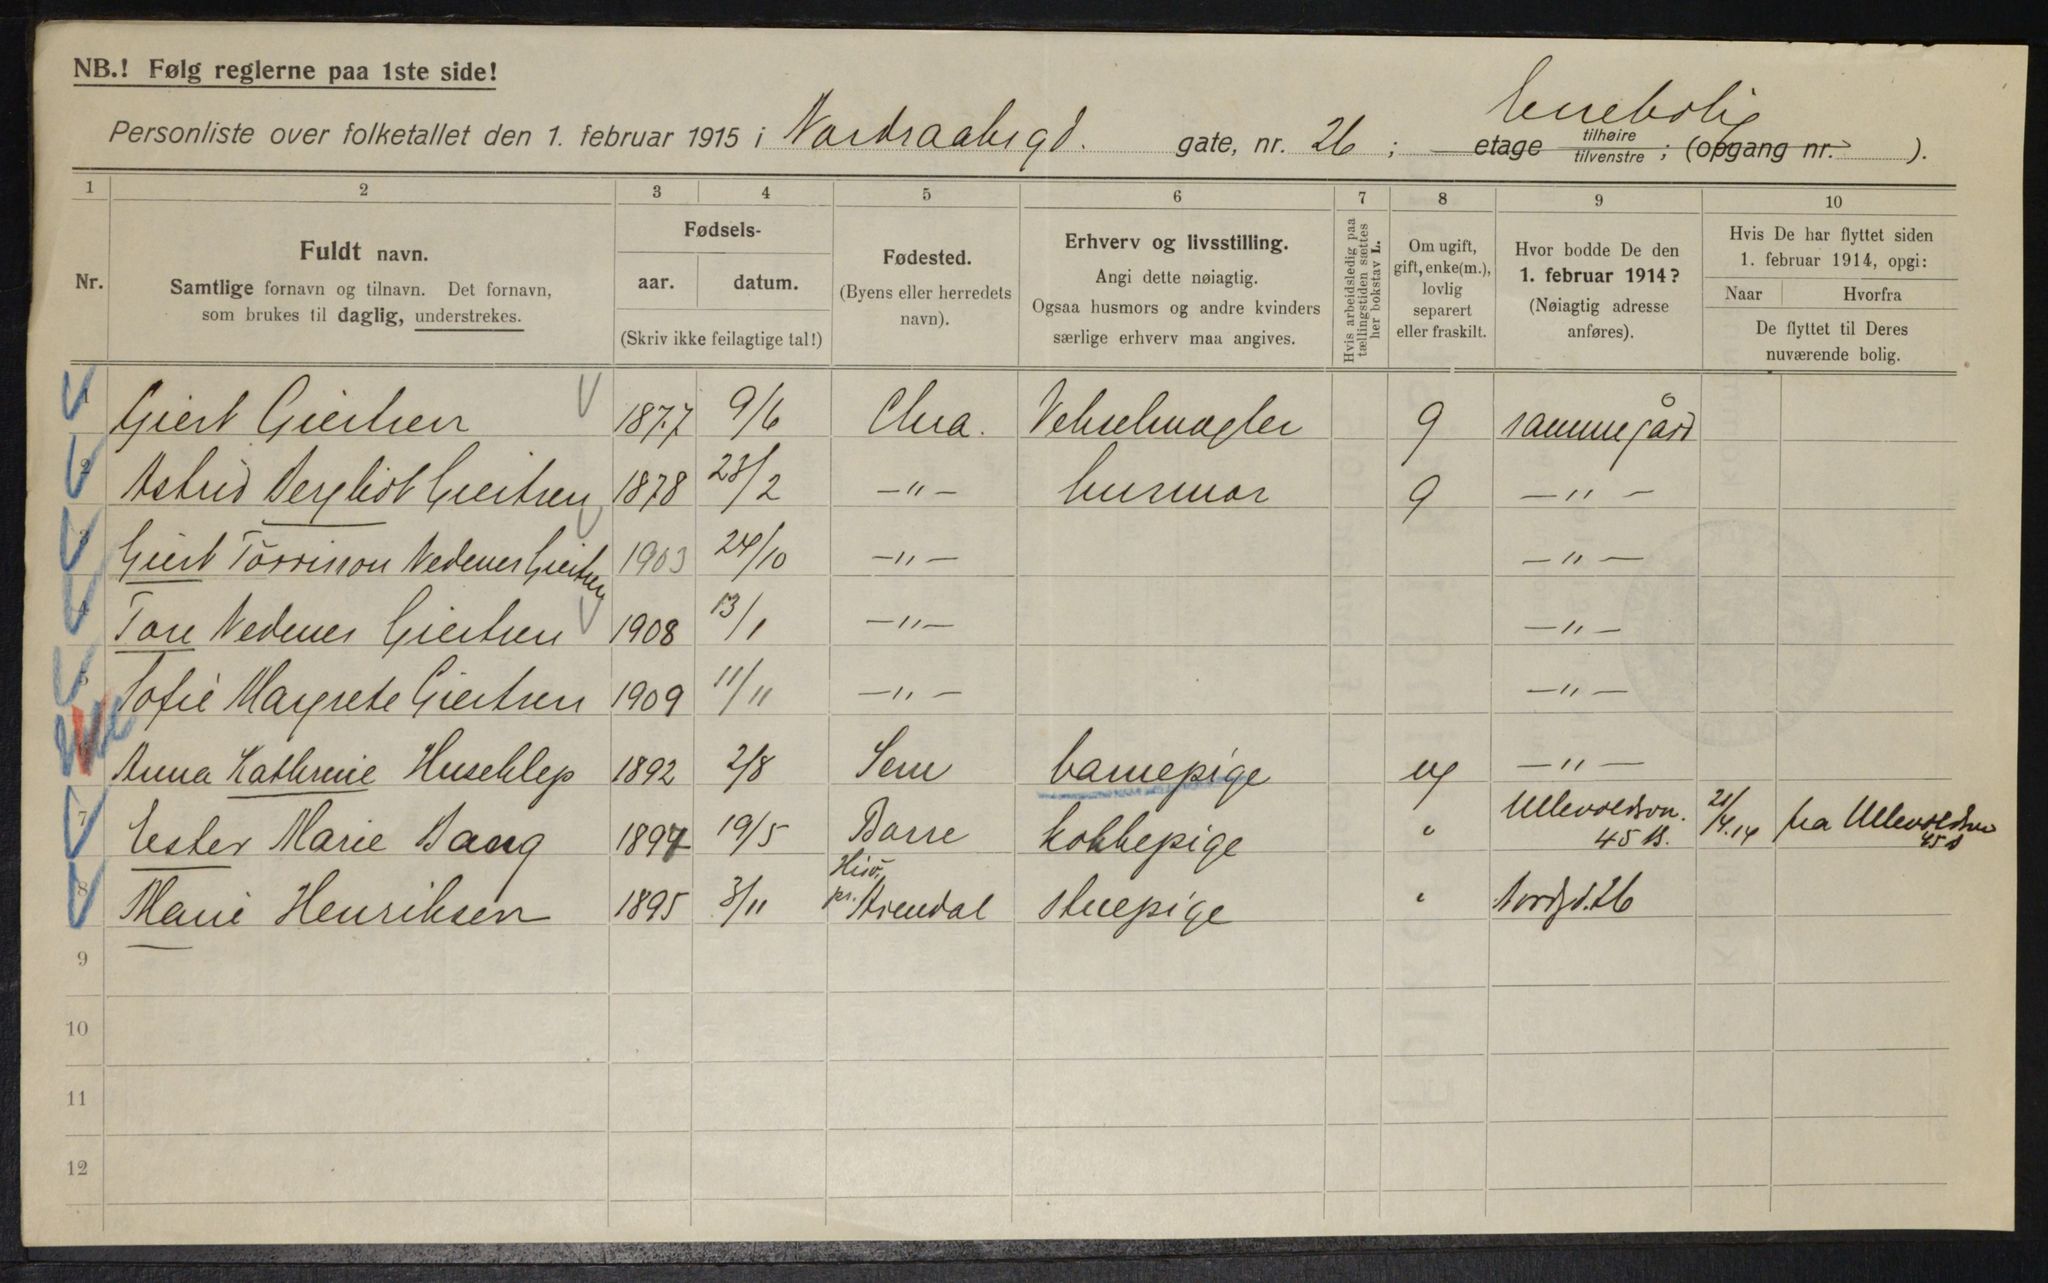 NB.! Følg reglerne paa 1ste side!
Enebolig
Personliste over folketallet den 1. februar 1915 i Nordraaksgd. gate, nr. 26 ; etage tilhøire tilvenstre ; (opgang nr. ).
1 2 3 4 5 6 7 8 9 10
Nr.
Fuldt navn.
Samtlige fornavn og tilnavn. Det fornavn,
som brukes til daglig, understrekes.
Fødsels-
aar. datum.
(Skriv ikke feilagtige tal!)
Fødested.
(Byens eller herredets
navn).
Erhverv og livsstilling.
Angi dette nøiagtig.
Ogsaa husmors og andre kvinders
særlige erhverv maa angives.
Hvis arbeidsledig paa
tællingstiden sættes
her bokstav L.
Om ugift,
gift, enke(m.),
lovlig
separert
eller fraskilt.
Hvor bodde De den
1. februar 1914?
(Nøiagtig adresse
anføres).
Hvis De har flyttet siden
1. februar 1914, opgi:
Naar Hvorfra
De flyttet til Deres
nuværende bolig.
1 Giert Giertsen 1877 9/6 Chra. Vekselmægler g samme gård
2 Astrid Bergliot Giertsen 1878 23/2 —"— husmor g —"—
3 Giert Torrisson Nedenes Giertsen 1903 24/10 —"— —"—
4 Tore Nedenes Giertsen 1908 13/1 —"— —"—
5 Sofie Margrete Giertsen 1909 11/11 —"— —"—
6 Anna Kathrine Huseklep 1892 2/8 Sem barnepige ug —"—
7 Ester Marie Bang 1897 19/5 Borre kokkepige " Ullevoldsvn. 45 B. 21/4.14 fra Ullevoldsvn 45 B
8 Marie Henriksen 1895 3/11 Hisö, pr. Arendal stuepige " Nordgd. 26
9
10
11
12